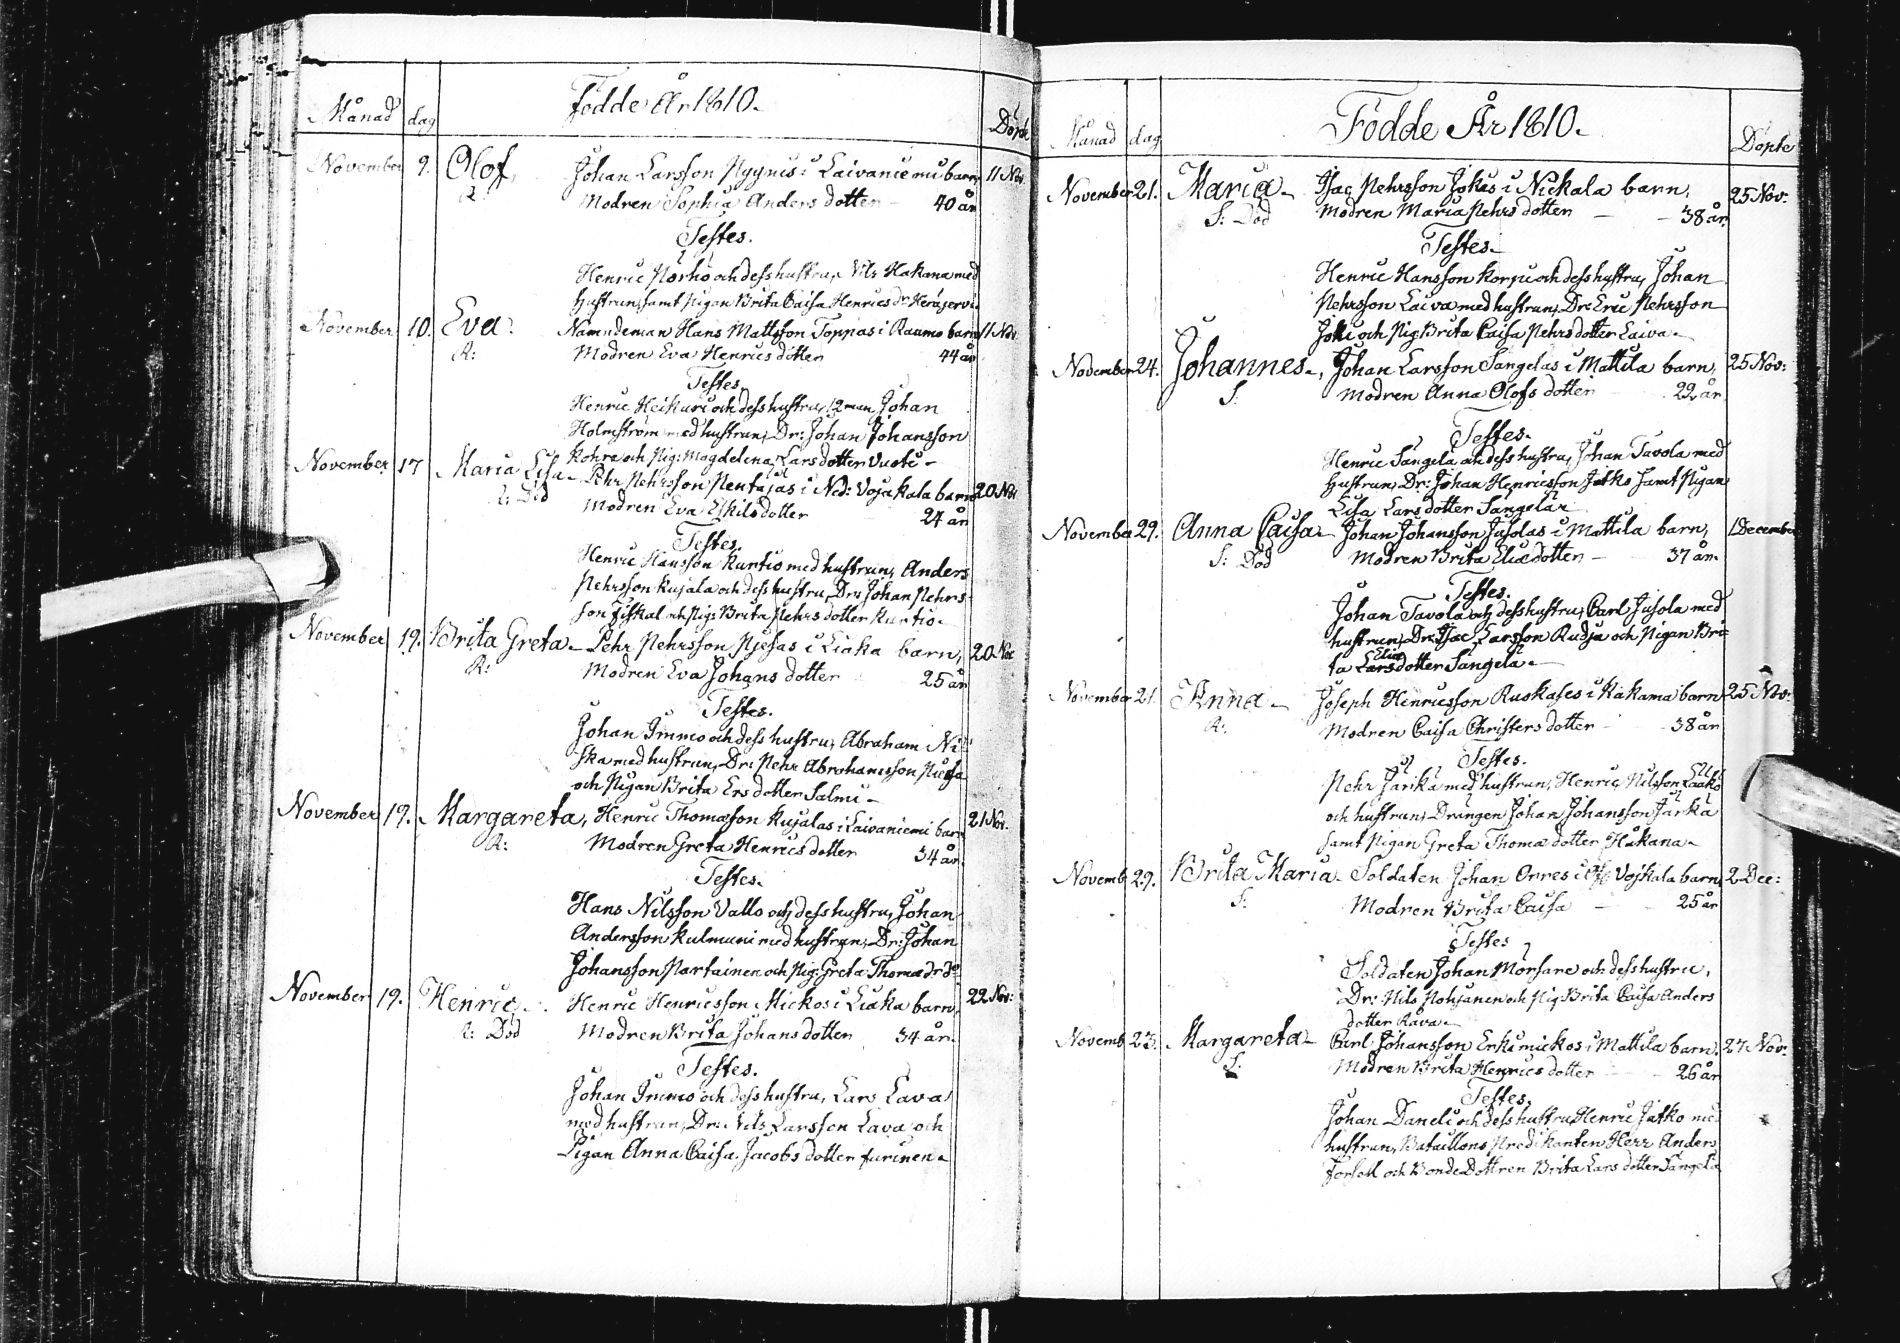 Födde År 1810.
Månad dag Döpte
November 9. Olof, Johan Larsson Nyynis i Laivaniemi barn 11 Nov.
R: Modren Sophia Anders dotter - 40 år
Testes.
Henric Norho och dess hustru, Nils Hakana med
Hustrun, samt Pigan Brita Caisa Henrics dr
November 10. Eva. Namndeman Hans Mattsson Toppas i Raumo barn 11 Nov
R: Modren Eva Henrics dotter 44 år
Testes
Henric Heikuri och dess hustru, 12 man Johan
Holmström med hustrun, Dr: Johan Johansson
Kohra och Pig: Magdelina Lars dotter Vuoti -
November 17 Maria Lisa - Pehr Pehrsson Pentäjäs i Ned: Vojakala barn 20 Nov
R: Död Modren Eva Eskils dotter 24 år
Testes.
Henric Hansson Kurtio med hustrun, Anders
Pehrsson Kujala och dess hustru, Dr: Johan Pehrs-
son Fiskal och Pig: Brita Pehrs dotter Kurtio -
November 19. Brita Greta - Pehr Pehrsson Njesas i Liaka barn, 20 Nov
R: Modren Eva Johans dotter 25 år
Testes.
Johan Immo och dess hustru, Abraham Ni-
ska med hustrun, Dr: Pehr Abrahamsson
och Pigan Brita Ers dotter Salmi -
November 19. Margareta, Henric Thomasson Kujalas i Laivaniemi barn 21 Nov.
R: Modren Greta Henrics dotter 34 år
Testes.
Hans Nilsson Vallo och dess hustru, Johan
Andersson Kulmuni med hustrun, Dr: Johan
Johansson Partainen och Pig: Greta Thomæ dr do
November 19. Henric. Henric Henricsson Mickos i Liaka barn, 22 Nov:
R: Död Modren Brita Johans dotter 34 år.
Testes.
Johan Immo och dess hustru, Lars Lava
med hustrun, Dr: Nils Larsson Lava och
Pigan Anna Caisa Jacobs dotter furinen -
Födde År 1810.
Månad dag Döpte
November 21. Maria - Isac Pehrsson Jokis i Nickala barn, 25 Nov:
S: Död Modren Maria Pehrs dotter - - 38 år
Testes -
Henric Hansson Korpi och dess hustru, Johan
Pehrsson Laiva med hustrun, Dr: Eric Pehrsson
Joki och Pig: Brita Caisa Pehrs dotter Laiva -
November 24. Johannes -, Johan Larsson Sangelas i Mattila barn, 25 Nov:
S: Modren Anna Olofs dotter 22 år
Testes.
Henric Sangela och dess hustru, Johan Tavola med
Hustrun, Dr: Johan Henricsson Jatko samt Pigan
Lisa Lars dotter Sangela
November 29. Anna Caisa - Johan Johansson Jusolas i Mattila barn, 1 December
S: Död Modren Brita Eliæ dotter - 37 år.
Testes.
Johan Tavola och dess hustru, Carl Jusola med
hustrun, Dr: Isac Larsson Rudja och Pigan Bri-
Eliæ
ta Lars dotter Sangela -
November 21. Anna - Joseph Henricsson Ruskases i Kakama barn 25 Nov:
R: Modren Caisa Christers dotter - 38 år
Testes.
Pehr Järkä med hustrun, Henric Nilsson Laako
och hustrun, Drängen Johan Johansson Järkä
samt Pigan Greta Thomæ dotter Hakana -
Novemb 29. Brita Maria - Soldaten Johan Orres i Vojkala barn, 2 Dec:
S: Modren Brita Caisa - - 25 år
Testes
Soldaten Johan Morsare och dess hustru,
Dr: Nils Pohjanen och Pig: Brita Caisa Anders
dotter Rava -
Novemb 23. Margareta - Carl Johansson Erkimickos i Mattila barn. 27 Nov:
S: Modren Brita Henrics dotter 26 år
Testes.
Johan Daneli och dess hustru, Henric Jatko med
hustrun, Bataillons Predikanten Herr Anders
och Bonde Dottren Brita Lars dotter Sangela